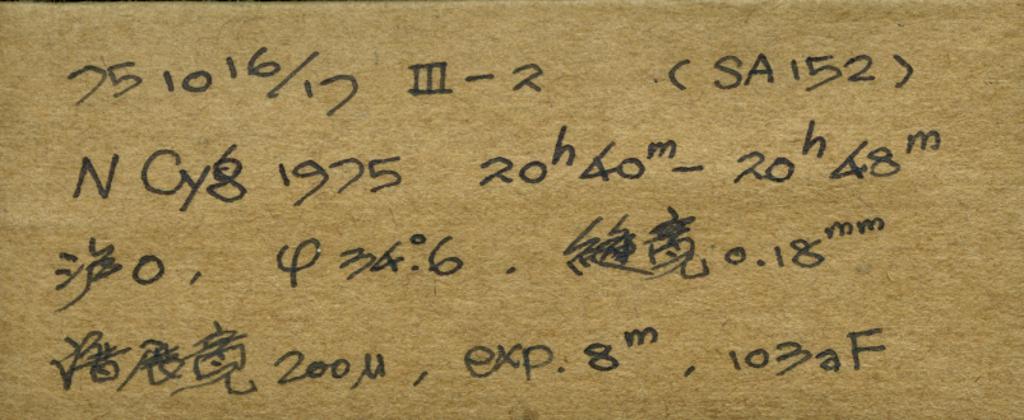 75 10 16/17 III-2 (SA152)
N Cyg 1975 20ʰ40ᵐ- 20ʰ48ᵐ
沪0, φ 34.°6. 缝宽 0.18ᵐᵐ
谱展宽 200μ, exp. 8ᵐ, 103aF